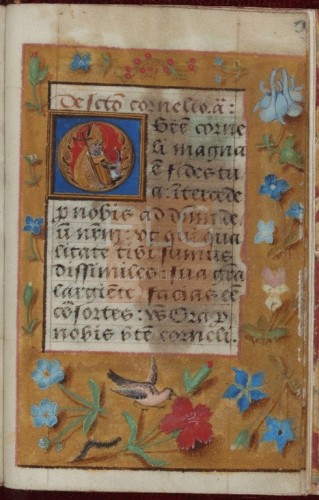 De scto cornelio. a:
Bte corne
li magna
e fides tu
a: intercede
p nobis ad dnm de
u nrm: vt qui qua
litate tibi sumus
dissimiles: sua gra
largiete facias ee
cosortes: vs Ora p
nobis bte corneli.